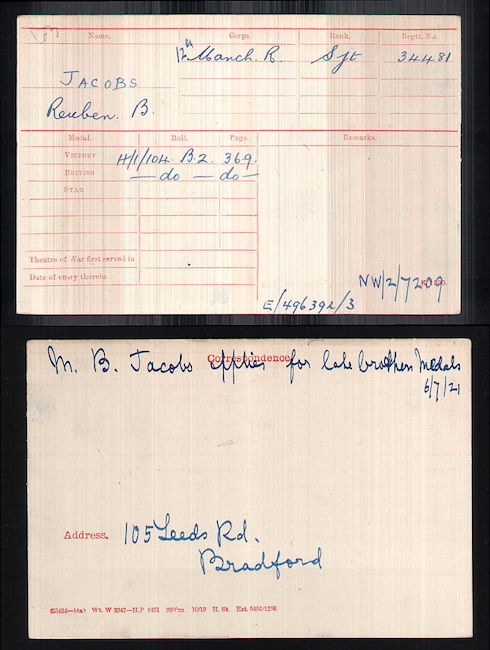 Name. Corps. Rank. Regtl. No.
12th Manch. R. Sjt 34481
JACOBS
Reuben. B.
Medal. Roll. Page. Remarks.
VICTORY H/1/104. B.2. 369.
BRITISH — do — do —
STAR
Theatre of War first served in
Date of entry therein
NW/2/7209
E/496392/3
Correspondence.
M. B. Jacobs applies for late brothers Medals
6/7/21
Address. 105 Leeds Rd.
Bradford
Wt. W 3347—H.P 6451 10/19 H. St.